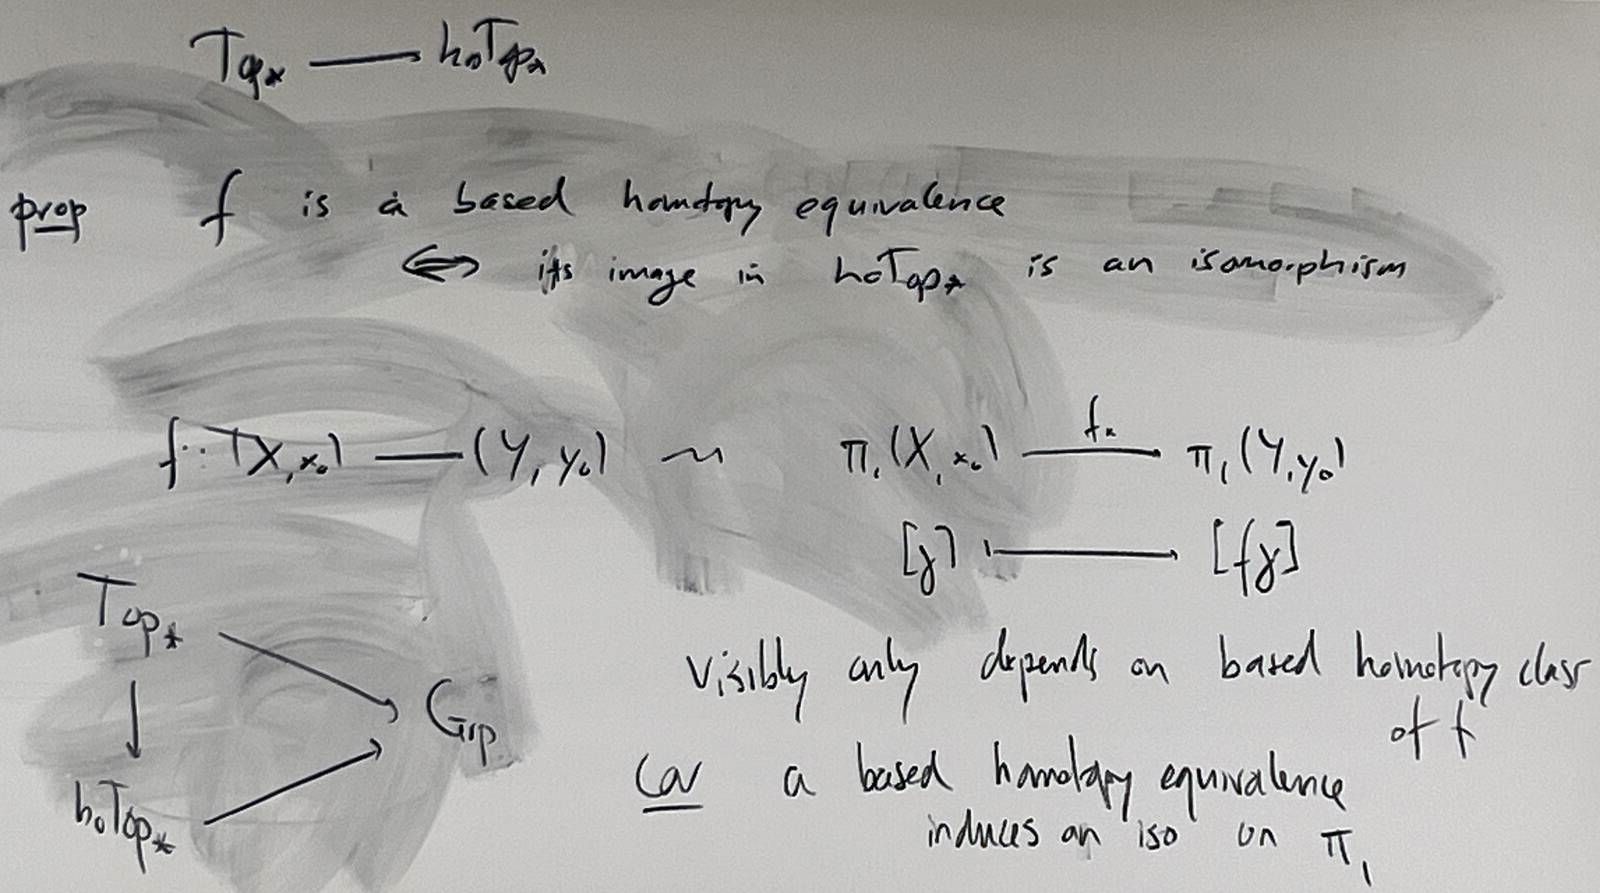 Top* — hoTop*
prop f is a based homotopy equivalence
⇔ its image in hoTop* is an isomorphism
f : (X, x₀) — (Y, y₀) ~ π₁(X, x₀) —f*— π₁(Y, y₀)
[γ] ↦ [fγ]
Top*
visibly only depends on based homotopy class
of f
Grp
Cor a based homotopy equivalence
hoTop*
induces an iso on π₁